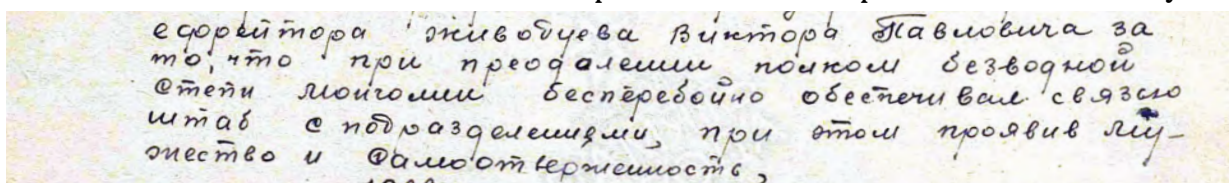 ефрейтора Живодуева Виктора Павловича за
то, что при преодалении полком безводной
степи Монголии бесперебойно обеспечивал связью
штаб с подразделениями, при этом проявив му-
жество и самоотверженность,